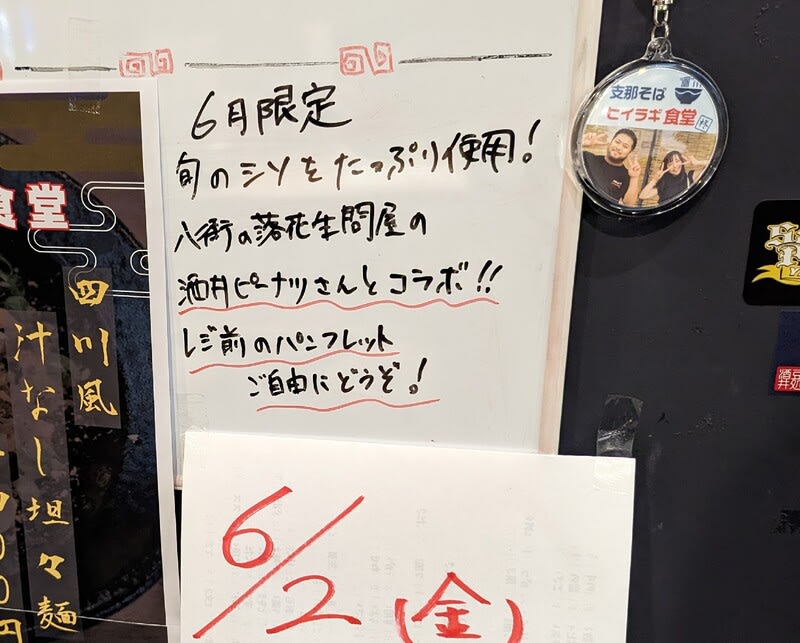 6月限定
旬のシソをたっぷり使用!
八街の落花生問屋の
酒井ピーナツさんとコラボ!!
レジ前のパンフレット
ご自由にどうぞ!
6/2(金)
食堂
四川風
汁なし坦々麺
00円
支那そば
ヒイラギ食堂